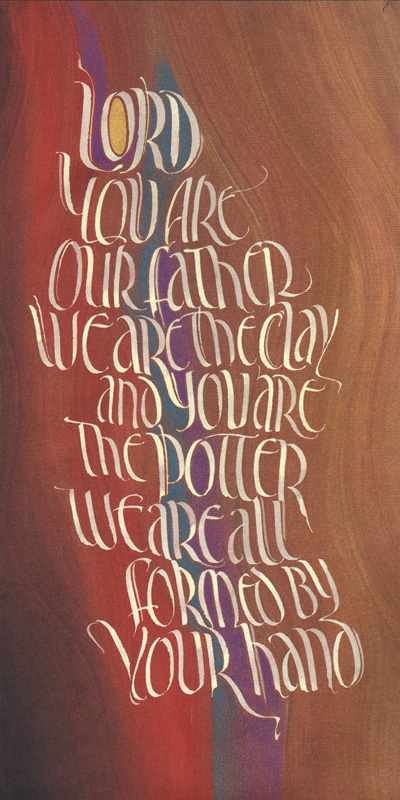 LORD
YOU ARE
OUR faTHER
WE ARE THE Clay
and YOU ARE
THE POTTER
WE ARE all
fORMED BY
YOUR hand